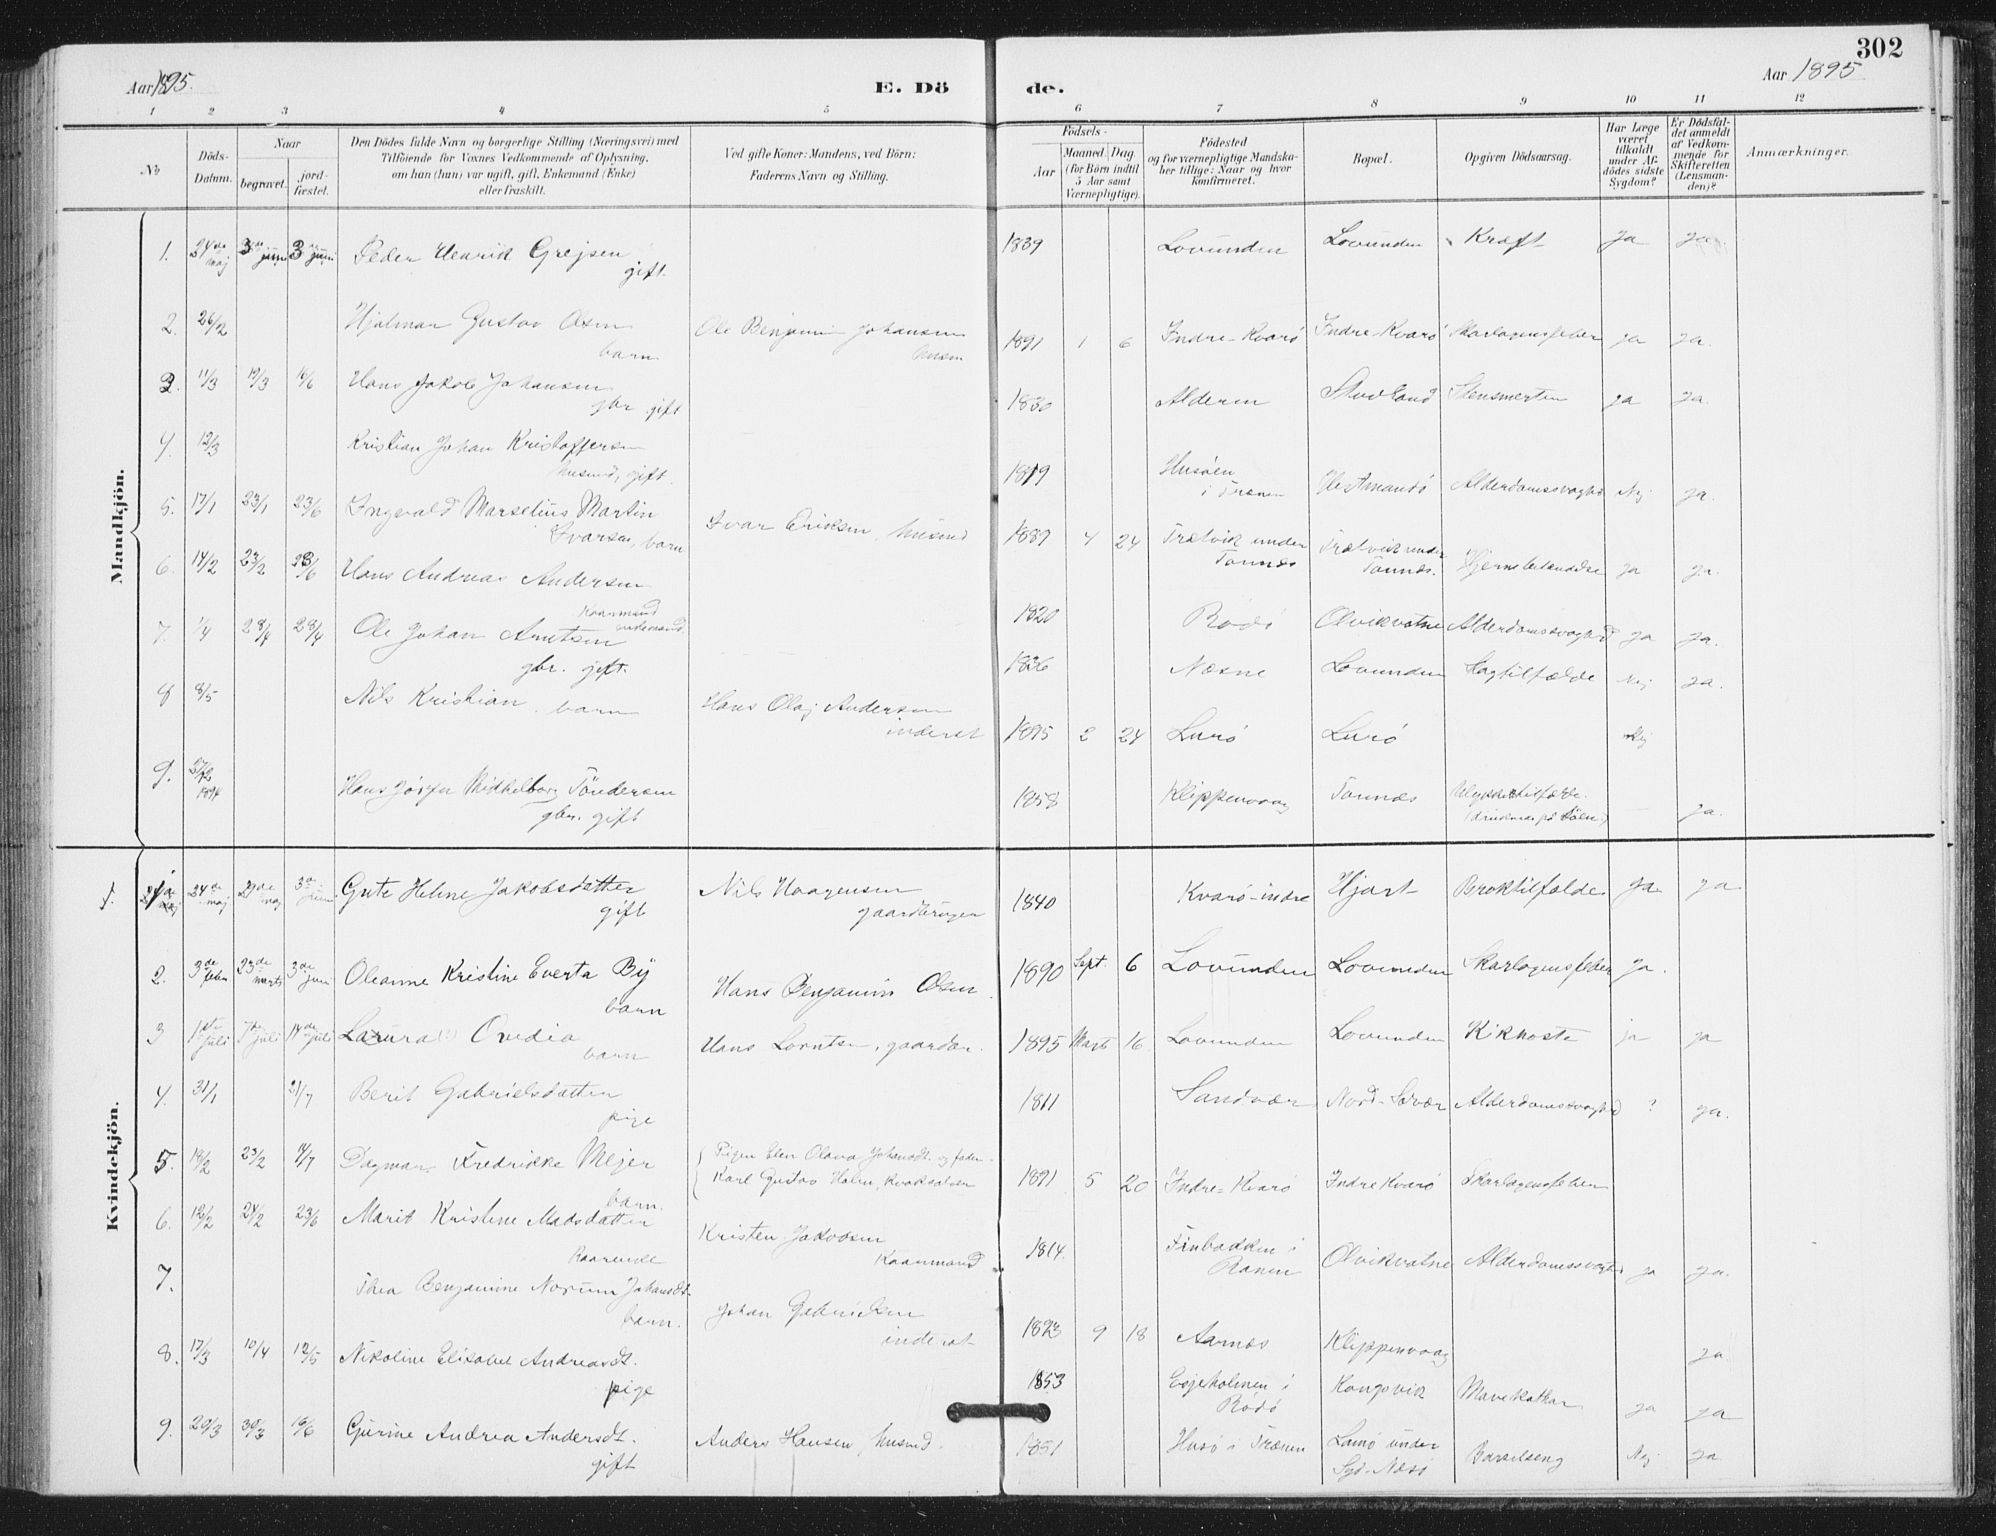 302
Aar 1895.
E. Dö
de.
Aar 1895.
1 2 3 4 5 6 7 8 9 10 11 12
No
Döds-
Datum.
Naar
begravet.
jord-
fæstet.
Den Dödes fulde Navn og borgerlige Stilling (Næringsvei) med
Tilföiende for Voxnes Vedkommende af Oplysning,
om han (hun) var ugift, gift, Enkemand (Enke)
eller fraskilt.
Ved gifte Koner: Mandens, ved Börn:
Faderens Navn og Stilling.
Födsels-
Aar
Maaned. Dag.
(for Börn indtil
5 Aar samt
Værnepligtige).
Födested
og for værnepligtige Mandska-
ber tillige: Naar og hvor
konfirmeret.
Bopæl.
Opgiven Dödsaarsag.
Har Læge
været
tilkaldt
under Af-
dödes sidste
Sygdom?
Er Dödsfal-
det anmeldt
af Vedkom-
mende for
Skifteretten
(Lensman-
den)?
Anmærkninger.
Mandkjön.
1. 24de maj 3de juni 3de juni Peder Henrik Grejsen 1839 Lovunden Lovunden Kræft Ja ja
gift
2. 26/2 Hjalmar Gustav Olsen Ole Benjamin Johansen 1891 1 6 Indre-Kvarö Indre-Kvarö Skarlagensfeber ja ja.
barn husm
3. 11/3 19/3 16/6 Hans Jakob Johansen 1830 Alderen Stuvland Stensmerten ja ja.
gbr. gift
4. 12/3 Kristian Johan Kristoffersen 1819 Husöen i Trænen Hestmandö Alderdomssvaghed Nej ja.
husmd, gift.
5. 17/1 23/1 23/6 Ingvald Marselius Martin Ivar Eriksen, husmd 1889 4 24 Trætvik under Tonnes Trætvik under Tonnes. Hjernebetændelse ja ja.
Ivarsen, barn
6. 14/2 23/2 23/6 Hans Andreas Andersen 1820 Rödö Olvikvatne Alderdomssvaghed ja ja.
Kaarmand
enkemand
7. 1/4 28/4 28/4 Ole Johan Arntsen 1836 Næsne Lovunden Slagtilfælde Nej ja.
gbr. gift.
8 8/5 Nils Kristian barn Hans Olaj Andersen 1895 2 24 Lurö Lurö Nej
inderst
9. 1894 Hans Jörgen Töndersen 1858 Klippenvaag Tonnes Ulykkestilfælde. ja.
gbr. gift
Kvindekjön.
1. 24de maj 29de maj 3de juni Gute Heline Jakobsdatter Nils Haagensen 1840 Kvarö-indre Hjart Broktilfælde ja ja
gift gaardbruger
2. 3de febr 23de marts 3de juni Oleanne Kristine Everta By Hans Benjamin Olsen 1890 Sept. 6 Lovunden Lovunden Skarlagensfeber ja.
barn
3 1ste juli 7de juli 14de juli Laura Ovedia Hans Lorntsen, gaardbr. 1895 Marts 16 Lovunden Lovunden Kikhoste ja ja
barn
4. 31/1 21/7 Berit Gabrielsdatter 1811 Sandvær Nord-Solvær Alderdomssvaghed ? ja.
pige
5. 19/2 23/2 14/7 Dagmar Fredrikke Mejer Pigen Elen Olava Johansdt. og fader 1891 5 20 Indre-Kvarö Indre Kvarö Skarlagensfeber
barn. Karl Gustav Holm, Kvaksalver
6. 19/2 24/2 23/6 Marit Kristine Madsdatter Kristen Jakobsen 1814 Finbakken i Ranen Olvikvatne Alderdomssvaghed ja ja.
Kaarende Kaarmand
7. Thea Benjamine Norum Johansdt. Johan Gabrielsen 1893 9 18 Aarnes Klippenvaag ja
barn. inderst
8. 17/3 10/4 19/5 Nikoline Elisabet Andreasdt. 1853 Esjeholmen i Rödö Kongsvik Mavekatar ja ja
pige
9. 29/3 30/3 16/6 Gurine Andrea Andersdt. Anders Hansen, husmd. 1851 Husö i Trænen Lamö under Syd-Næsö Barselseng Nej ja
gift